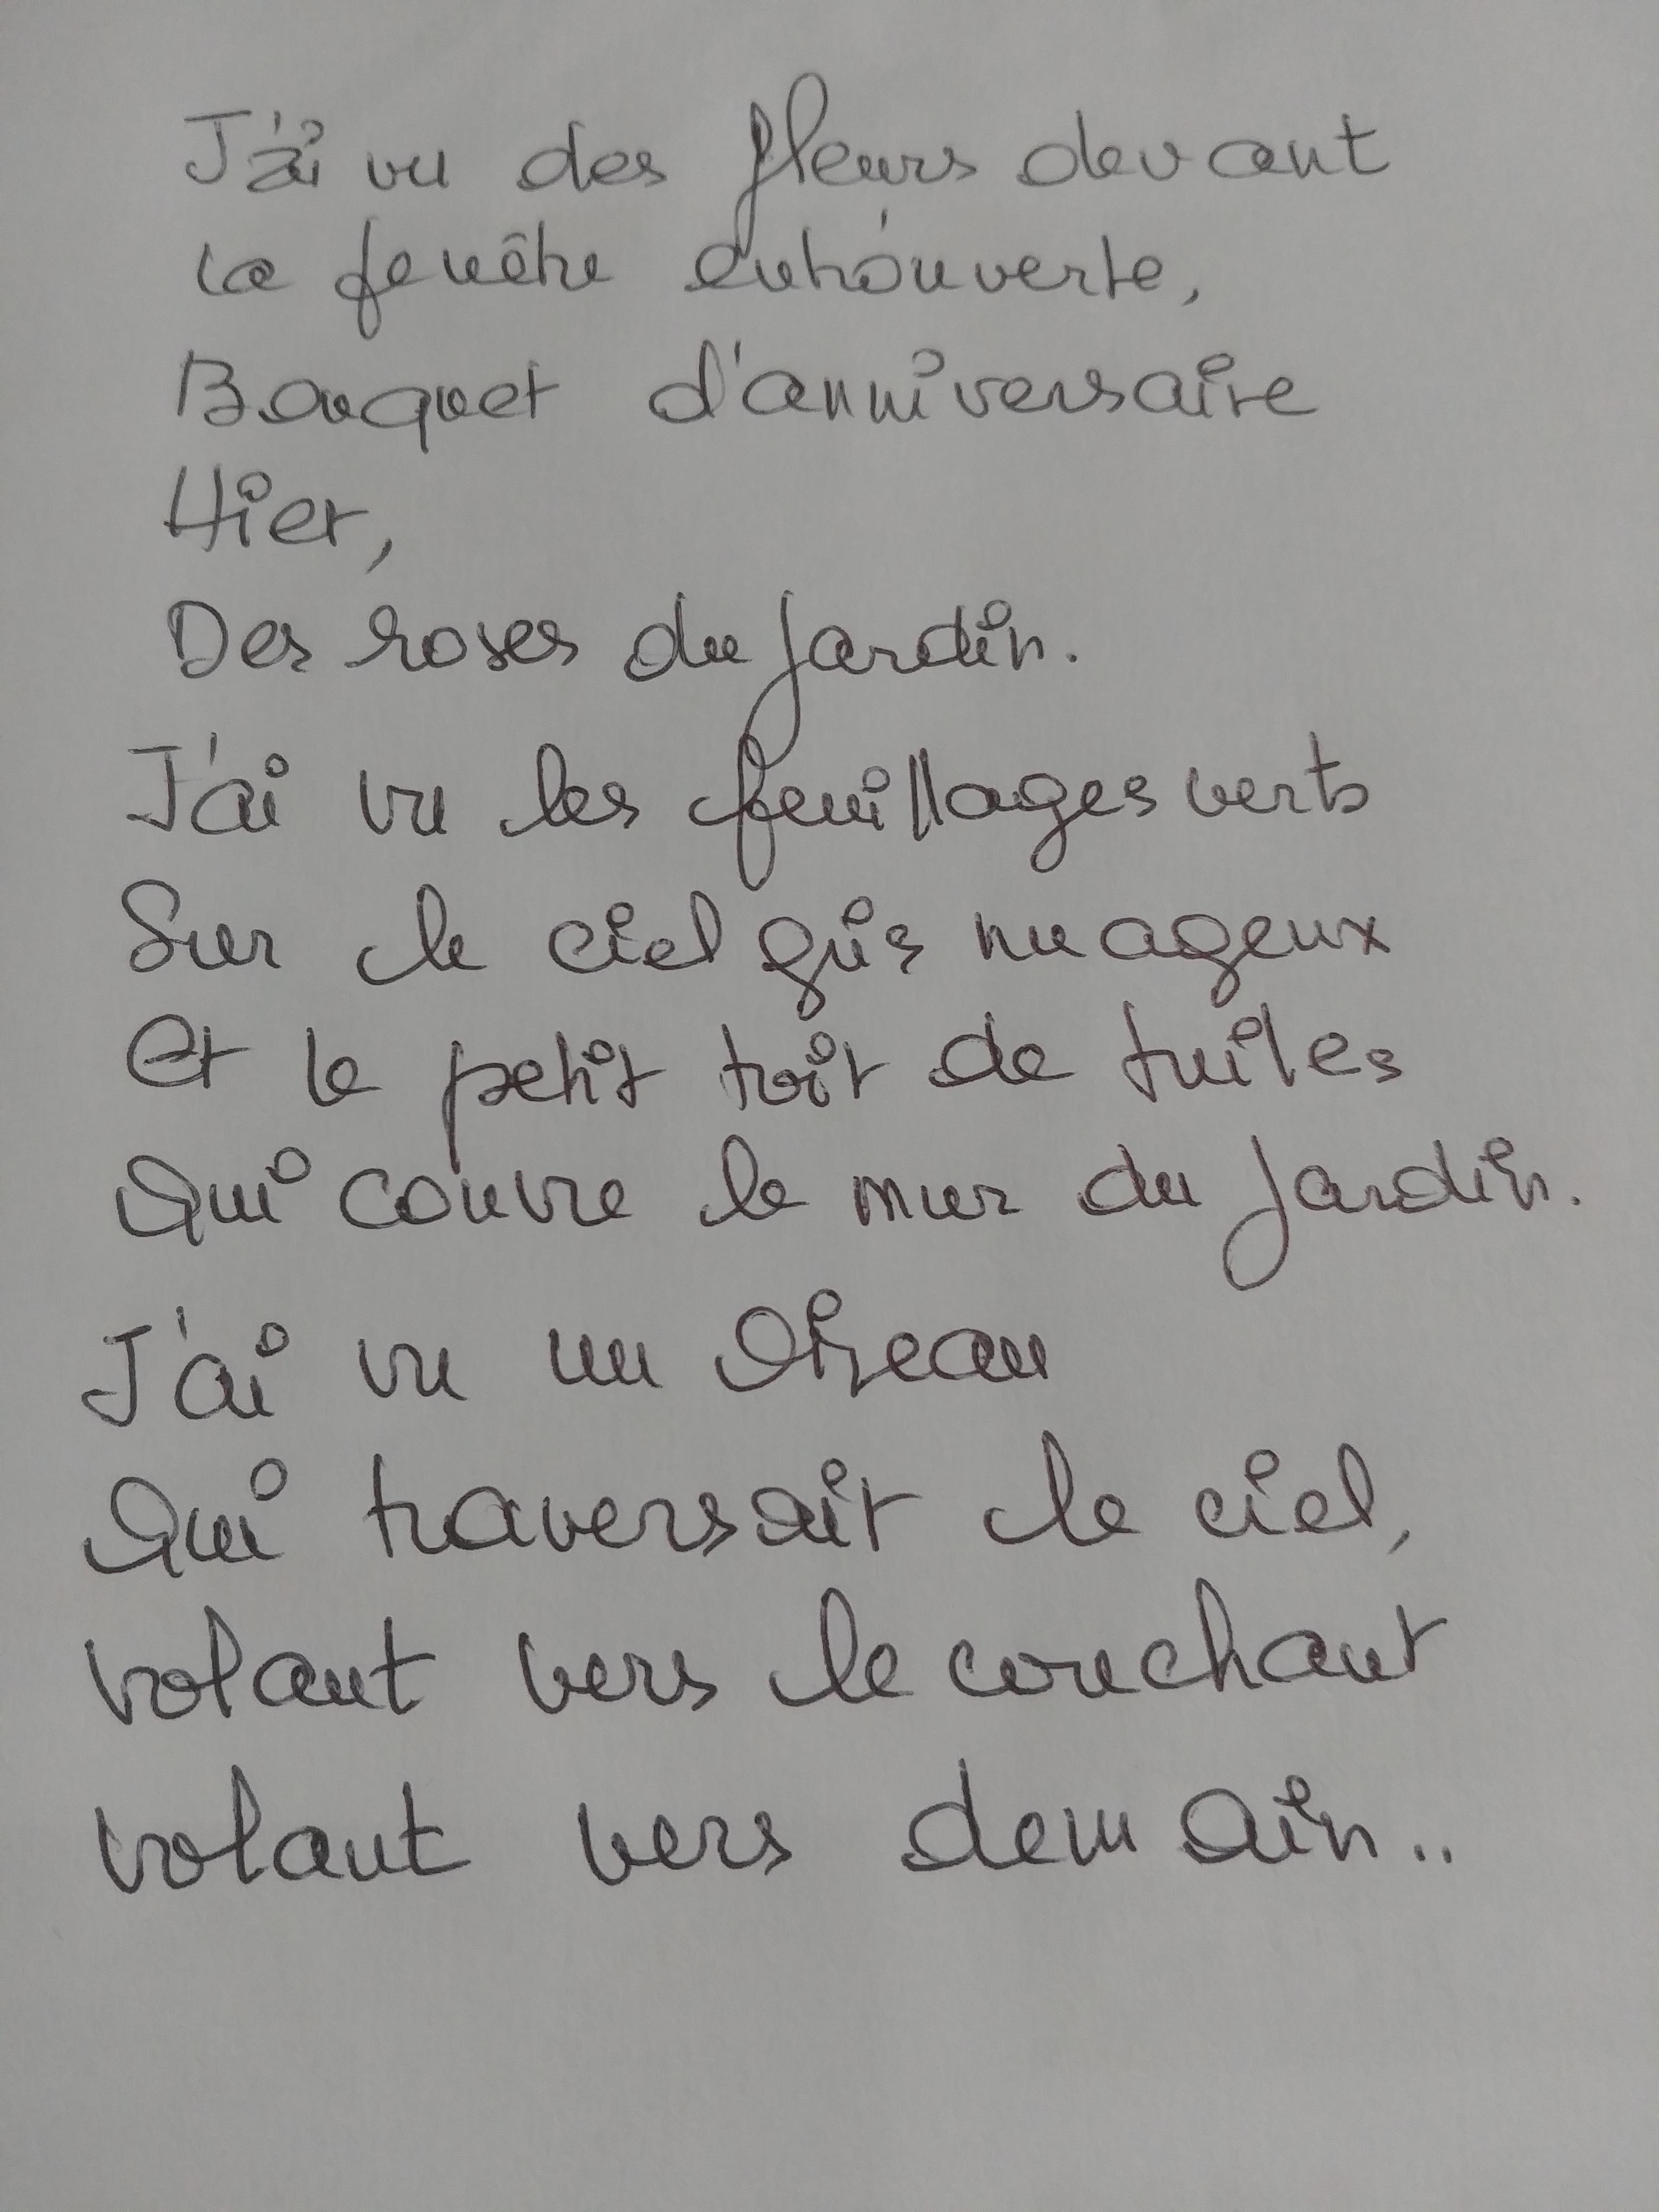 J'ai vu des fleurs devant
la fenêtre entr'ouverte,
Bouquet d'anniversaire
Hier,
Des roses du jardin.
J'ai vu les feuillages verts
Sur le ciel gris nuageux
Et le petit toit de tuiles
Qui couvre le mur du jardin.
J'ai vu un Oiseau
Qui traversait le ciel,
volant vers le couchant
volant vers demain..